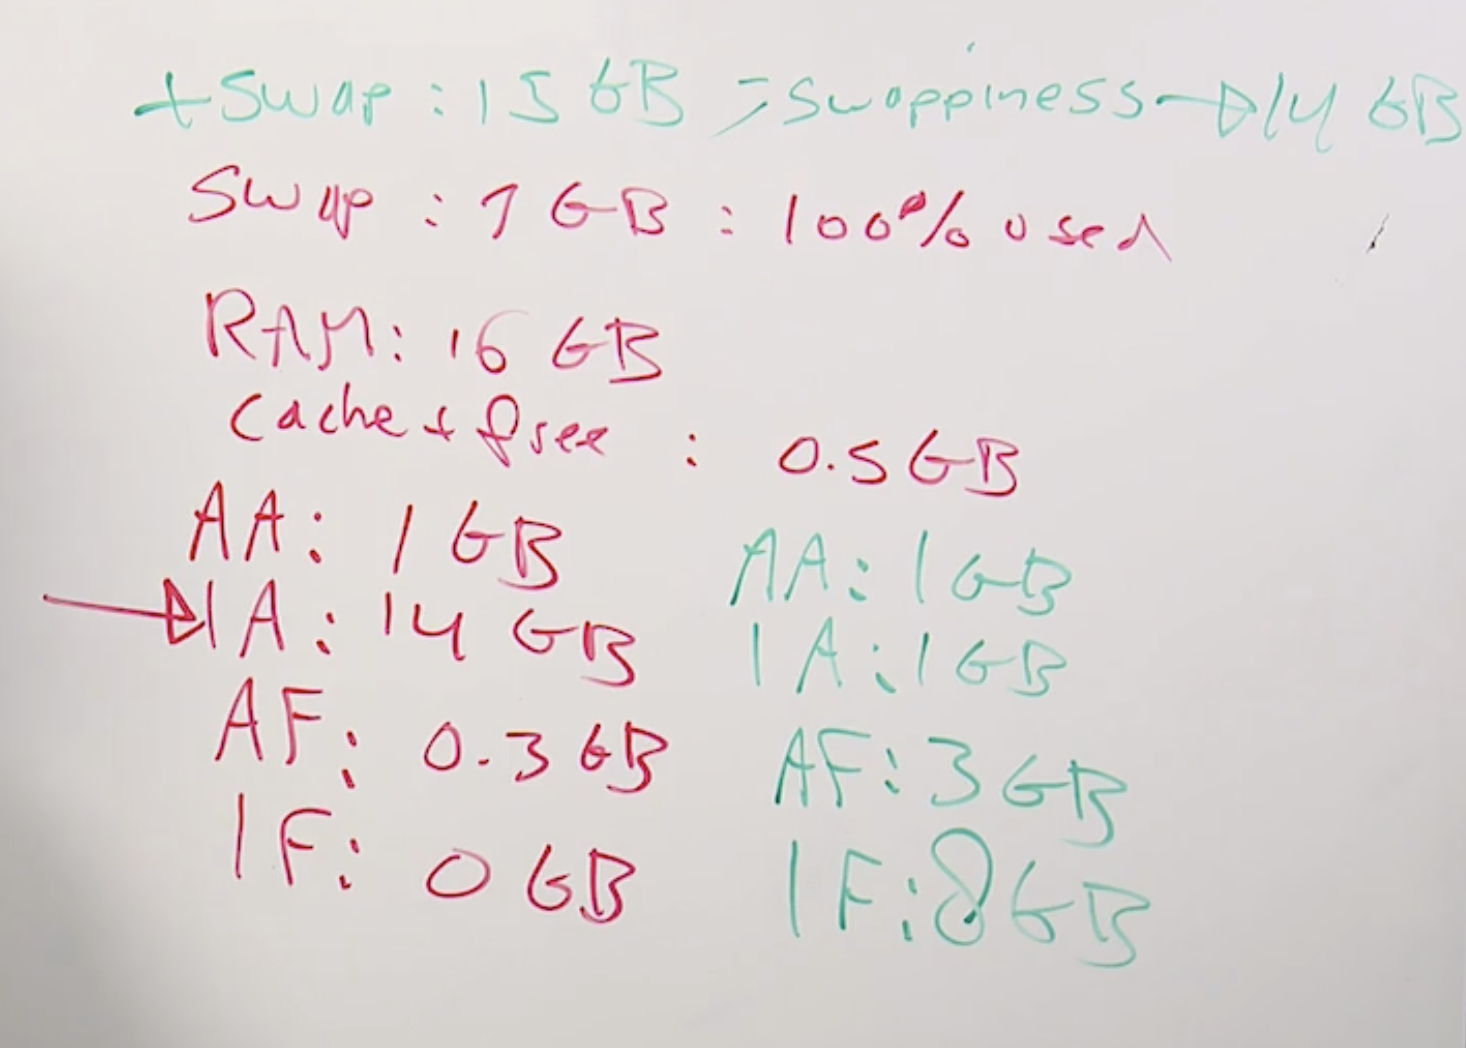 + Swap : 15 GB => swappiness → 14 GB
Swap : 1 GB : 100% used
RAM: 16 GB
Cache + free : 0.5 GB
AA: 1 GB
AA: 1 GB
→ IA: 14 GB
IA: 1 GB
AF: 0.3 GB
AF: 3 GB
IF: 0 GB
IF: 8 GB